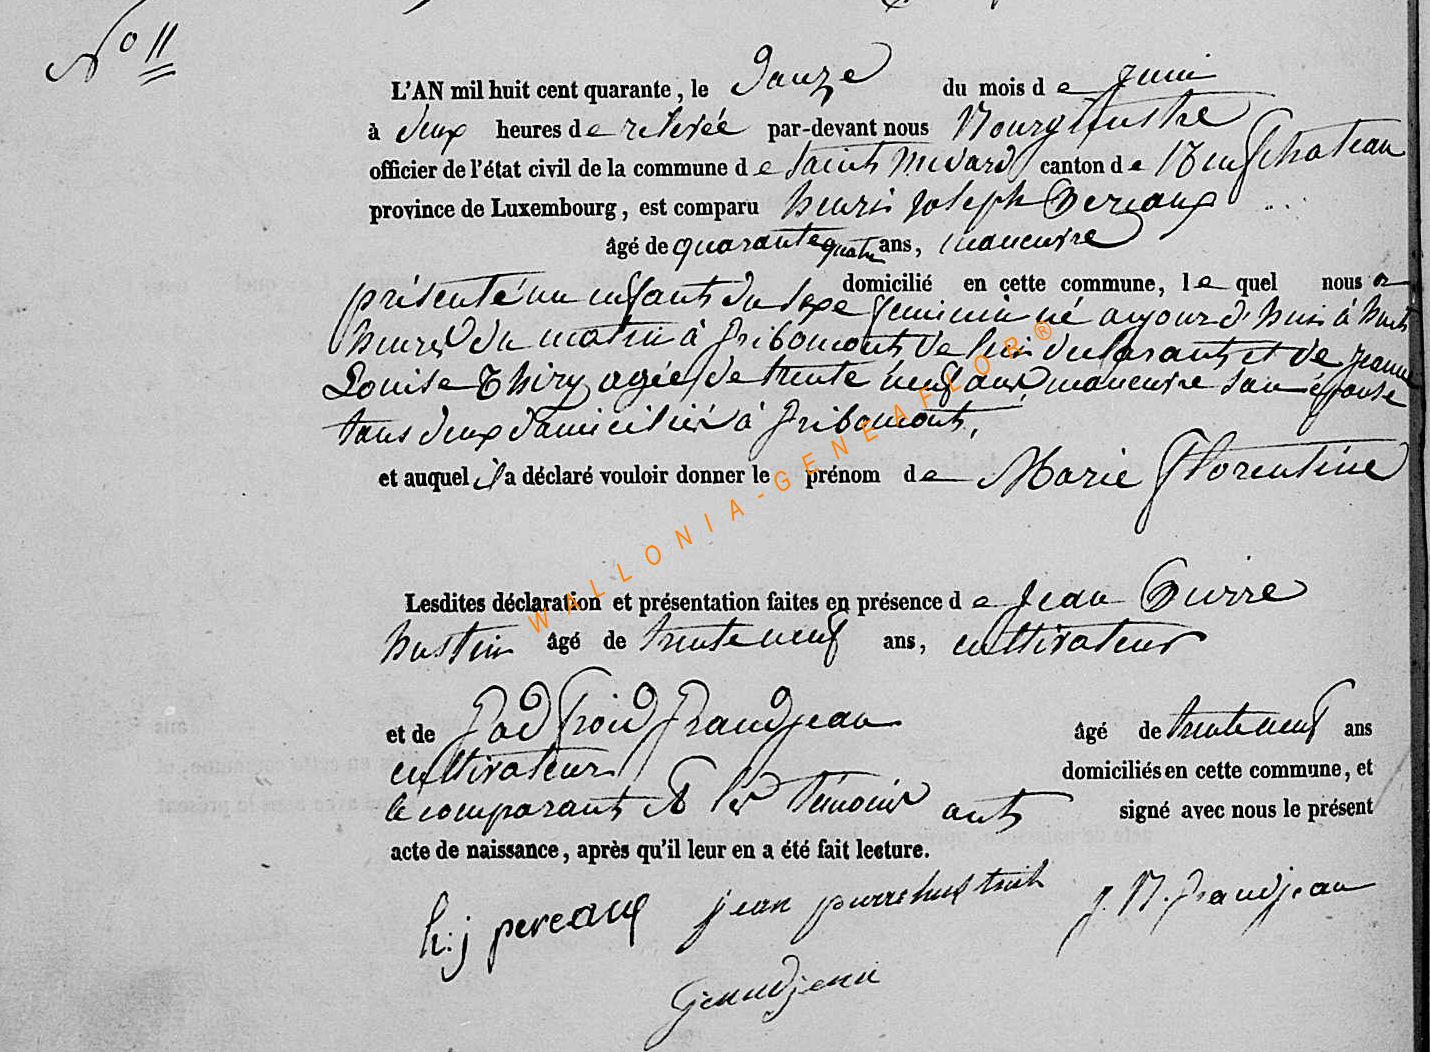 N° 11
L'AN mil huit cent quarante, le douze du mois de juin
à deux heures de relevée par-devant nous Bourgmestre
officier de l'état civil de la commune de Saint Médard canton de Neufchateau
province de Luxembourg, est comparu henri joseph Pereaux
âgé de quarante quatre ans, maneuvre
domicilié en cette commune, le quel nous a
présenté un enfant du sexe feminin né aujourd'hui à huit
heures du matin à gribomont de lui declarant et de jeanne
Louise Thiry agée de trente neuf ans, maneuvre son épouse
tous deux domiciliés à gribomont,
et auquel il a déclaré vouloir donner le prénom de Marie florentine
Lesdites déclaration et présentation faites en présence de jean Pierre
hustin âgé de trente neuf ans, cultivateur
et de godfroid grandjean âgé de trente neuf ans
cultivateur domiciliés en cette commune, et
le comparant et les témoins ont signé avec nous le présent
acte de naissance, après qu'il leur en a été fait lecture.
h:j pereaux jean pierre hustin j. N. grandjean
Grandjean
WALLONIA-GENEAFLOR®